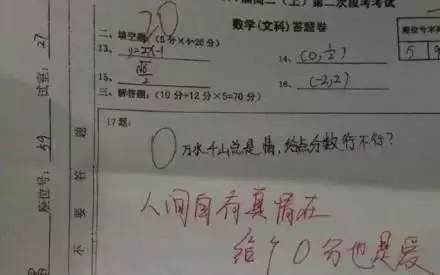 届高二（上）第二次段考考试
数学(文科)答题卷
20
二、填空题：(5分×4=20分)
13、y=2x-1
14、(0,1/2)
15、√6/2
16、(-2,2)
三、解答题：(10分+12分×5=70分)
17题：
0
万水千山总是情，给点分数行不行？
人间自有真情在
给个0分也是爱
试室：27
座位号：
不要答题
座位号末两
5